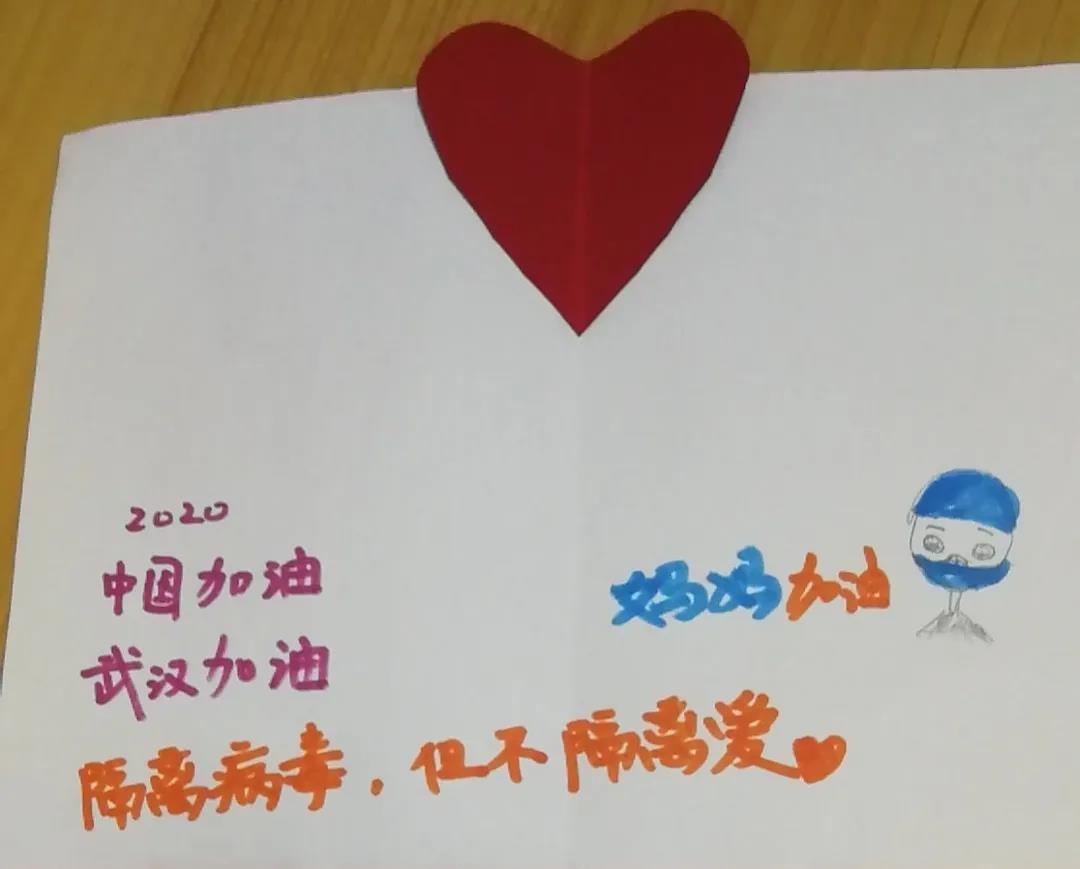 2020
中国加油
武汉加油
妈妈加油
隔离病毒，但不隔离爱